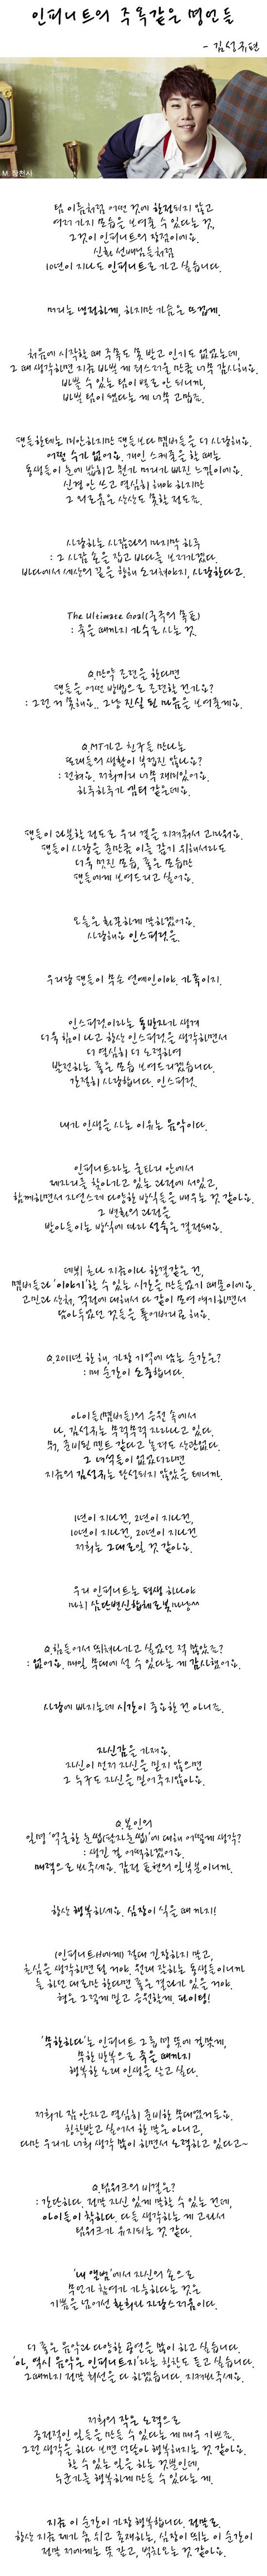 인피니트의 주옥같은 명언들
- 김성규편
M. 장천사
팀 이름처럼 어떤 것에 한정되지 않고
여러 가지 모습을 보여줄 수 있다는 것,
그것이 인피니트의 장점이에요.
신화 선배님들처럼
10년이 지나도 인피니트로 가고 싶습니다.
머리는 냉정하게, 하지만 가슴은 뜨겁게.
처음에 시작할 때 주목도 못 받고 인기도 없었는데,
그 때 생각하면 지금 바쁜 게 죄스러울 만큼 너무 감사해요.
바쁠 수 있는 팀이 별로 안 되니까,
바쁠 팀이 됐다는 게 너무 고맙죠.
팬들한테는 미안하지만 팬들보다 멤버들을 더 사랑해요.
어쩔 수가 없어요. 개인 스케줄을 할 때는
동생들이 눈에 밟히고 뭔가 머리가 빠진 느낌이에요.
신경 안 쓰고 열심히 해야 하지만
그 외로움은 상상도 못할 정도죠.
사랑하는 사람과의 마지막 하루
: 그 사람 손을 잡고 바다를 보러가겠다.
바다에서 세상의 끝을 향해 소리쳐야지, 사랑한다고.
The Ultimate Goal(궁극의 목표)
: 죽을 때까지 가수로 사는 것.
Q.만약 조련을 한다면
팬들을 어떤 방법으로 조련할 건가요?
: 그런 거 못해요.. 그냥 진실 된 마음을 보여줄게요.
Q.MT가고 친구들 만나는
또래들의 생활이 부럽진 않나요?
: 전혀요. 저희끼리 너무 재미있어요.
하루하루가 캠퍼 같은데요.
팬들이 과분할 정도로 우리 곁을 지켜줘서 고마워요.
팬들이 사랑을 준만큼 이를 갚기 위해서라도
더욱 멋진 모습, 좋은 모습만
팬들에게 보여드리고 싶어요.
오늘은 화끈하게 말하겠어요.
사랑해요 인스피릿을.
우리랑 팬들이 무슨 연예인이야. 가족이지.
인스피릿이라는 동반자가 생겨
더욱 힘이 나고 항상 인스피릿을 생각하면서
더 열심히 더 노력하여
발전하는 좋은 모습 보여드리겠습니다.
간절히 사랑합니다. 인스피릿.
내가 인생을 사는 이유는 음악이다.
인피니트라는 울타리 안에서
제자리를 찾아가고 있는 과정에 서있고,
함께하면서 자연스레 다양한 방식들을 배우는 것 같아요.
그 변화의 과정을
받아들이는 방식에 따라 성숙은 결정돼요.
데뷔 초나 지금이나 한결같은 건,
멤버들과 '이야기'할 수 있는 시간을 만들었기 때문이에요.
고민과 상처, 걱정에 대해서 다 같이 모여 얘기하면서
담아두었던 것들을 풀어버리곤 해요.
Q.2011년 한 해, 가장 기억에 남는 순간은?
: 매 순간이 소중합니다.
아이들(멤버들)의 응원 속에서
나, 김성규는 무럭무럭 자라나고 있다.
뭐, 준비된 멘트 같다고 놀려도 상관없다.
그 녀석들이 없었더라면
지금의 김성규는 완성되지 않았을 테니까.
1년이 지나건, 2년이 지나건,
10년이 지나건, 20년이 지나건
저희는 그대로일 것 같아요.
우리 인피니트는 평생 하나야
마치 삼단변신합체로봇마냥^^
Q.힘들어서 뛰쳐나가고 싶었던 적 많았죠?
: 없어요. 매일 무대에 설 수 있다는 게 감사했어요.
사랑에 빠지는데 시간이 중요한 건 아니죠.
자신감을 가져요.
자신이 먼저 자신을 믿지 않으면
그 누구도 자신을 믿어주지않아요.
Q.본인의
일명 '억울한 눈썹(팔자눈썹)'에 대해 어떻게 생각?
: 생긴 걸 어떡하겠어요.
매력으로 봐주세요. 감정 표현의 일부분이니까.
항상 행복하세요. 심장이 식을 때 까지!
(인피니트H에게) 절대 긴장하지 말고,
초심을 생각하면 될 거야. 원래 잘하는 동생들이니까
늘 하던 대로만 한다면 좋은 결과가 있을 거야.
형은 그렇게 믿고 응원할게. 파이팅!
'무한하다'는 인피니트 그룹 명 뜻에 걸맞게,
무한 반복으로 죽을 때까지
행복한 노래 인생을 살고 싶다.
저희가 잠 안자고 열심히 준비한 무대였거든요.
칭찬받고 싶어서 한 말은 아니고,
다만 우리가 너희 생각 많이 하면서 노력하고 있다고~
Q.팀워크의 비결은?
: 간단하다. 정말 자신 있게 말할 수 있는 건데,
아이들이 착하다. 다들 생각하는 게 고와서
팀워크가 유지되는 것 같다.
'내 앨범'에서 자신의 손으로
무언가 참여가 가능하다는 것은
기쁨을 넘어선 환희나 자랑스러움이다.
더 좋은 음악과 다양한 공연을 많이 하고 싶습니다.
'아, 역시 음악은 인피니트지'라는 칭찬도 듣고 싶습니다.
그때까지 정말 최선을 다 하겠습니다. 지켜봐주세요.
저희의 작은 노력으로
긍정적인 일들을 만들 수 있다는 게 매우 기쁘죠.
그런 생각을 하다 보면 덩달아 행복해지는 것 같아요.
할 수 있는 일을 하는 것뿐인데,
누군가를 행복하게 만들 수 있다는 게.
지금 이 순간이 가장 행복합니다. 정말로.
항상 지금 제가 숨 쉬고 존재하는, 심장이 뛰는 이 순간이
정말 저에게는 뜻 깊고, 벅차오는 것 같아요.